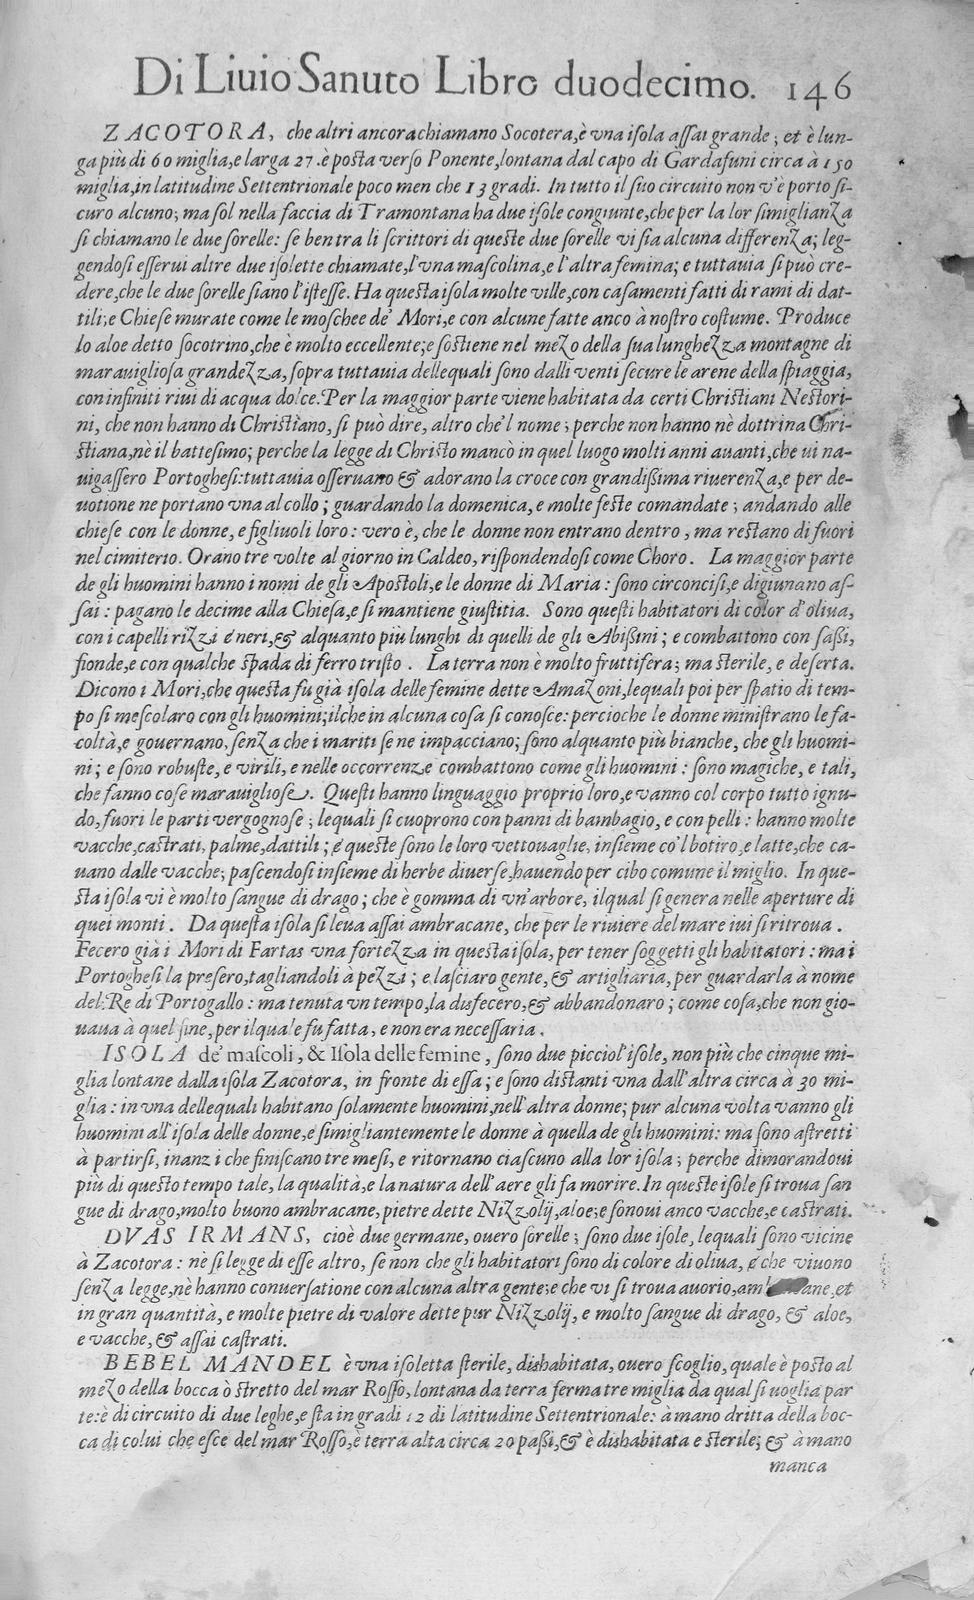 Di Liuio Sanuto Libro duodecimo. 146
ZACOTORA, che altri ancora chiamano Socotera, è vna isola assai grande; et è lun-
ga più di 60 miglia, e larga 27. è posta verso Ponente, lontana dal capo di Gardafuni circa à 150
miglia, in latitudine Settentrionale poco men che 13 gradi. In tutto il suo circuito non v'è porto si-
curo alcuno; ma sol nella faccia di Tramontana ha due isole congiunte, che per la lor simiglianza
si chiamano le due sorelle: se ben tra li scrittori di queste due sorelle vi sia alcuna differenza; leg-
gendosi esserui altre due isolette chiamate, l'vna mascolina, e l'altra femina; e tuttauia si può cre-
dere, che le due sorelle siano l'istesse. Ha questa isola molte ville, con casamenti fatti di rami di dat-
tili; e Chiese murate come le moschee de' Mori, e con alcune fatte anco à nostro costume. Produce
lo aloe detto socotrino, che è molto eccellente; e sostiene nel mezo della sua lunghezza montagne di
marauigliosa grandezza, sopra tuttauia dellequali sono dalli venti secure le arene della spiaggia,
con infiniti riui di acqua dolce. Per la maggior parte viene habitata da certi Christiani Nestori-
ni, che non hanno di Christiano, si può dire, altro che'l nome; perche non hanno nè dottrina Chri-
stiana, nè il battesimo; perche la legge di Christo mancò in quel luogo molti anni auanti, che ui na-
uigassero Portoghesi: tuttauia osseruano & adorano la croce con grandissima riuerenza, e per de-
uotione ne portano vna al collo; guardando la domenica, e molte feste comandate; andando alle
chiese con le donne, e figliuoli loro: vero è, che le donne non entrano dentro, ma restano di fuori
nel cimiterio. Orano tre volte al giorno in Caldeo, rispondendosi come Choro. La maggior parte
de gli huomini hanno i nomi de gli Apostoli, e le donne di Maria: sono circoncisi, e digiunano as-
sai: pagano le decime alla Chiesa, e si mantiene giustitia. Sono questi habitatori di color d'oliua,
con i capelli rizzi e neri, & alquanto più lunghi di quelli de gli Abissini; e combattono con sassi,
fionde, e con qualche spada di ferro tristo. La terra non è molto fruttifera; ma sterile, e deserta.
Dicono i Mori, che questa fu già isola delle femine dette Amazoni, lequali poi per spatio di tem-
po si mescolaro con gli huomini; ilche in alcuna cosa si conosce: percioche le donne ministrano le fa-
coltà, e gouernano, senza che i mariti se ne impacciano; sono alquanto più bianche, che gli huomi-
ni; e sono robuste, e virili, e nelle occorrenze combattono come gli huomini: sono magiche, e tali,
che fanno cose marauigliose. Questi hanno linguaggio proprio loro, e vanno col corpo tutto ignu-
do, fuori le parti vergognose; lequali si cuoprono con panni di bambagio, e con pelli: hanno molte
vacche, castrati, palme, dattili; e queste sono le loro vettouaglie, insieme co'l botiro, e latte, che ca-
uano dalle vacche; pascendosi insieme di herbe diuerse, hauendo per cibo comune il miglio. In que-
sta isola vi è molto sangue di drago; che è gomma di vn'arbore, ilqual si genera nelle aperture di
quei monti. Da questa isola si leua assai ambracane, che per le riuiere del mare iui si ritroua.
Fecero già i Mori di Fartas vna fortezza in questa isola, per tener soggetti gli habitatori: ma i
Portoghesi la presero, tagliandoli à pezzi; e lasciaro gente, & artigliaria, per guardarla à nome
del Re di Portogallo: ma tenuta vn tempo, la disfecero, & abbandonaro; come cosa, che non gio-
uaua à quel fine, per ilquale fu fatta, e non era necessaria.
ISOLA de' mascoli, & Isola delle femine, sono due picciol'isole, non più che cinque mi-
glia lontane dalla isola Zacotora, in fronte di essa; e sono distanti vna dall'altra circa à 30 mi-
glia: in vna dellequali habitano solamente huomini, nell'altra donne; pur alcuna volta vanno gli
huomini all'isola delle donne, e simigliantemente le donne à quella de gli huomini: ma sono astretti
à partirsi, inanzi che finiscano tre mesi, e ritornano ciascuno alla lor isola; perche dimorandoui
più di questo tempo tale, la qualità, e la natura dell'aere gli fa morire. In queste isole si troua san
gue di drago, molto buono ambracane, pietre dette Nizzolij, aloe; e sonoui anco vacche, e castrati.
DVAS IRMANS, cioè due germane, ouero sorelle; sono due isole, lequali sono vicine
à Zacotora: nè si legge di esse altro, se non che gli habitatori sono di colore di oliua, e che viuono
senza legge, nè hanno conuersatione con alcuna altra gente; e che vi si troua auorio, ane, et
in gran quantità, e molte pietre di valore dette pur Nizzolij, e molto sangue di drago, & aloe,
e vacche, & assai castrati.
BEBEL MANDEL è vna isoletta sterile, dishabitata, ouero scoglio, quale è posto al
mezo della bocca ò stretto del mar Rosso, lontana da terra ferma tre miglia da qual si uoglia par
te: è di circuito di due leghe, e sta in gradi 12 di latitudine Settentrionale: à mano dritta della boc-
ca di colui che esce del mar Rosso, è terra alta circa 20 passi, & è dishabitata e sterile; & à mano
manca